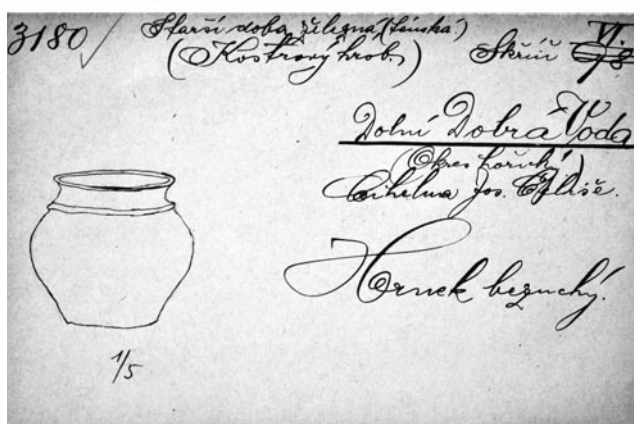 3180 Starší doba železná (laténská.) VI.
(Kostrový hrob.) Skříň
Dolní Dobrá Voda
(Okres hořický)
Cihelna Jos.
Hrnek bezuchý.
1/5